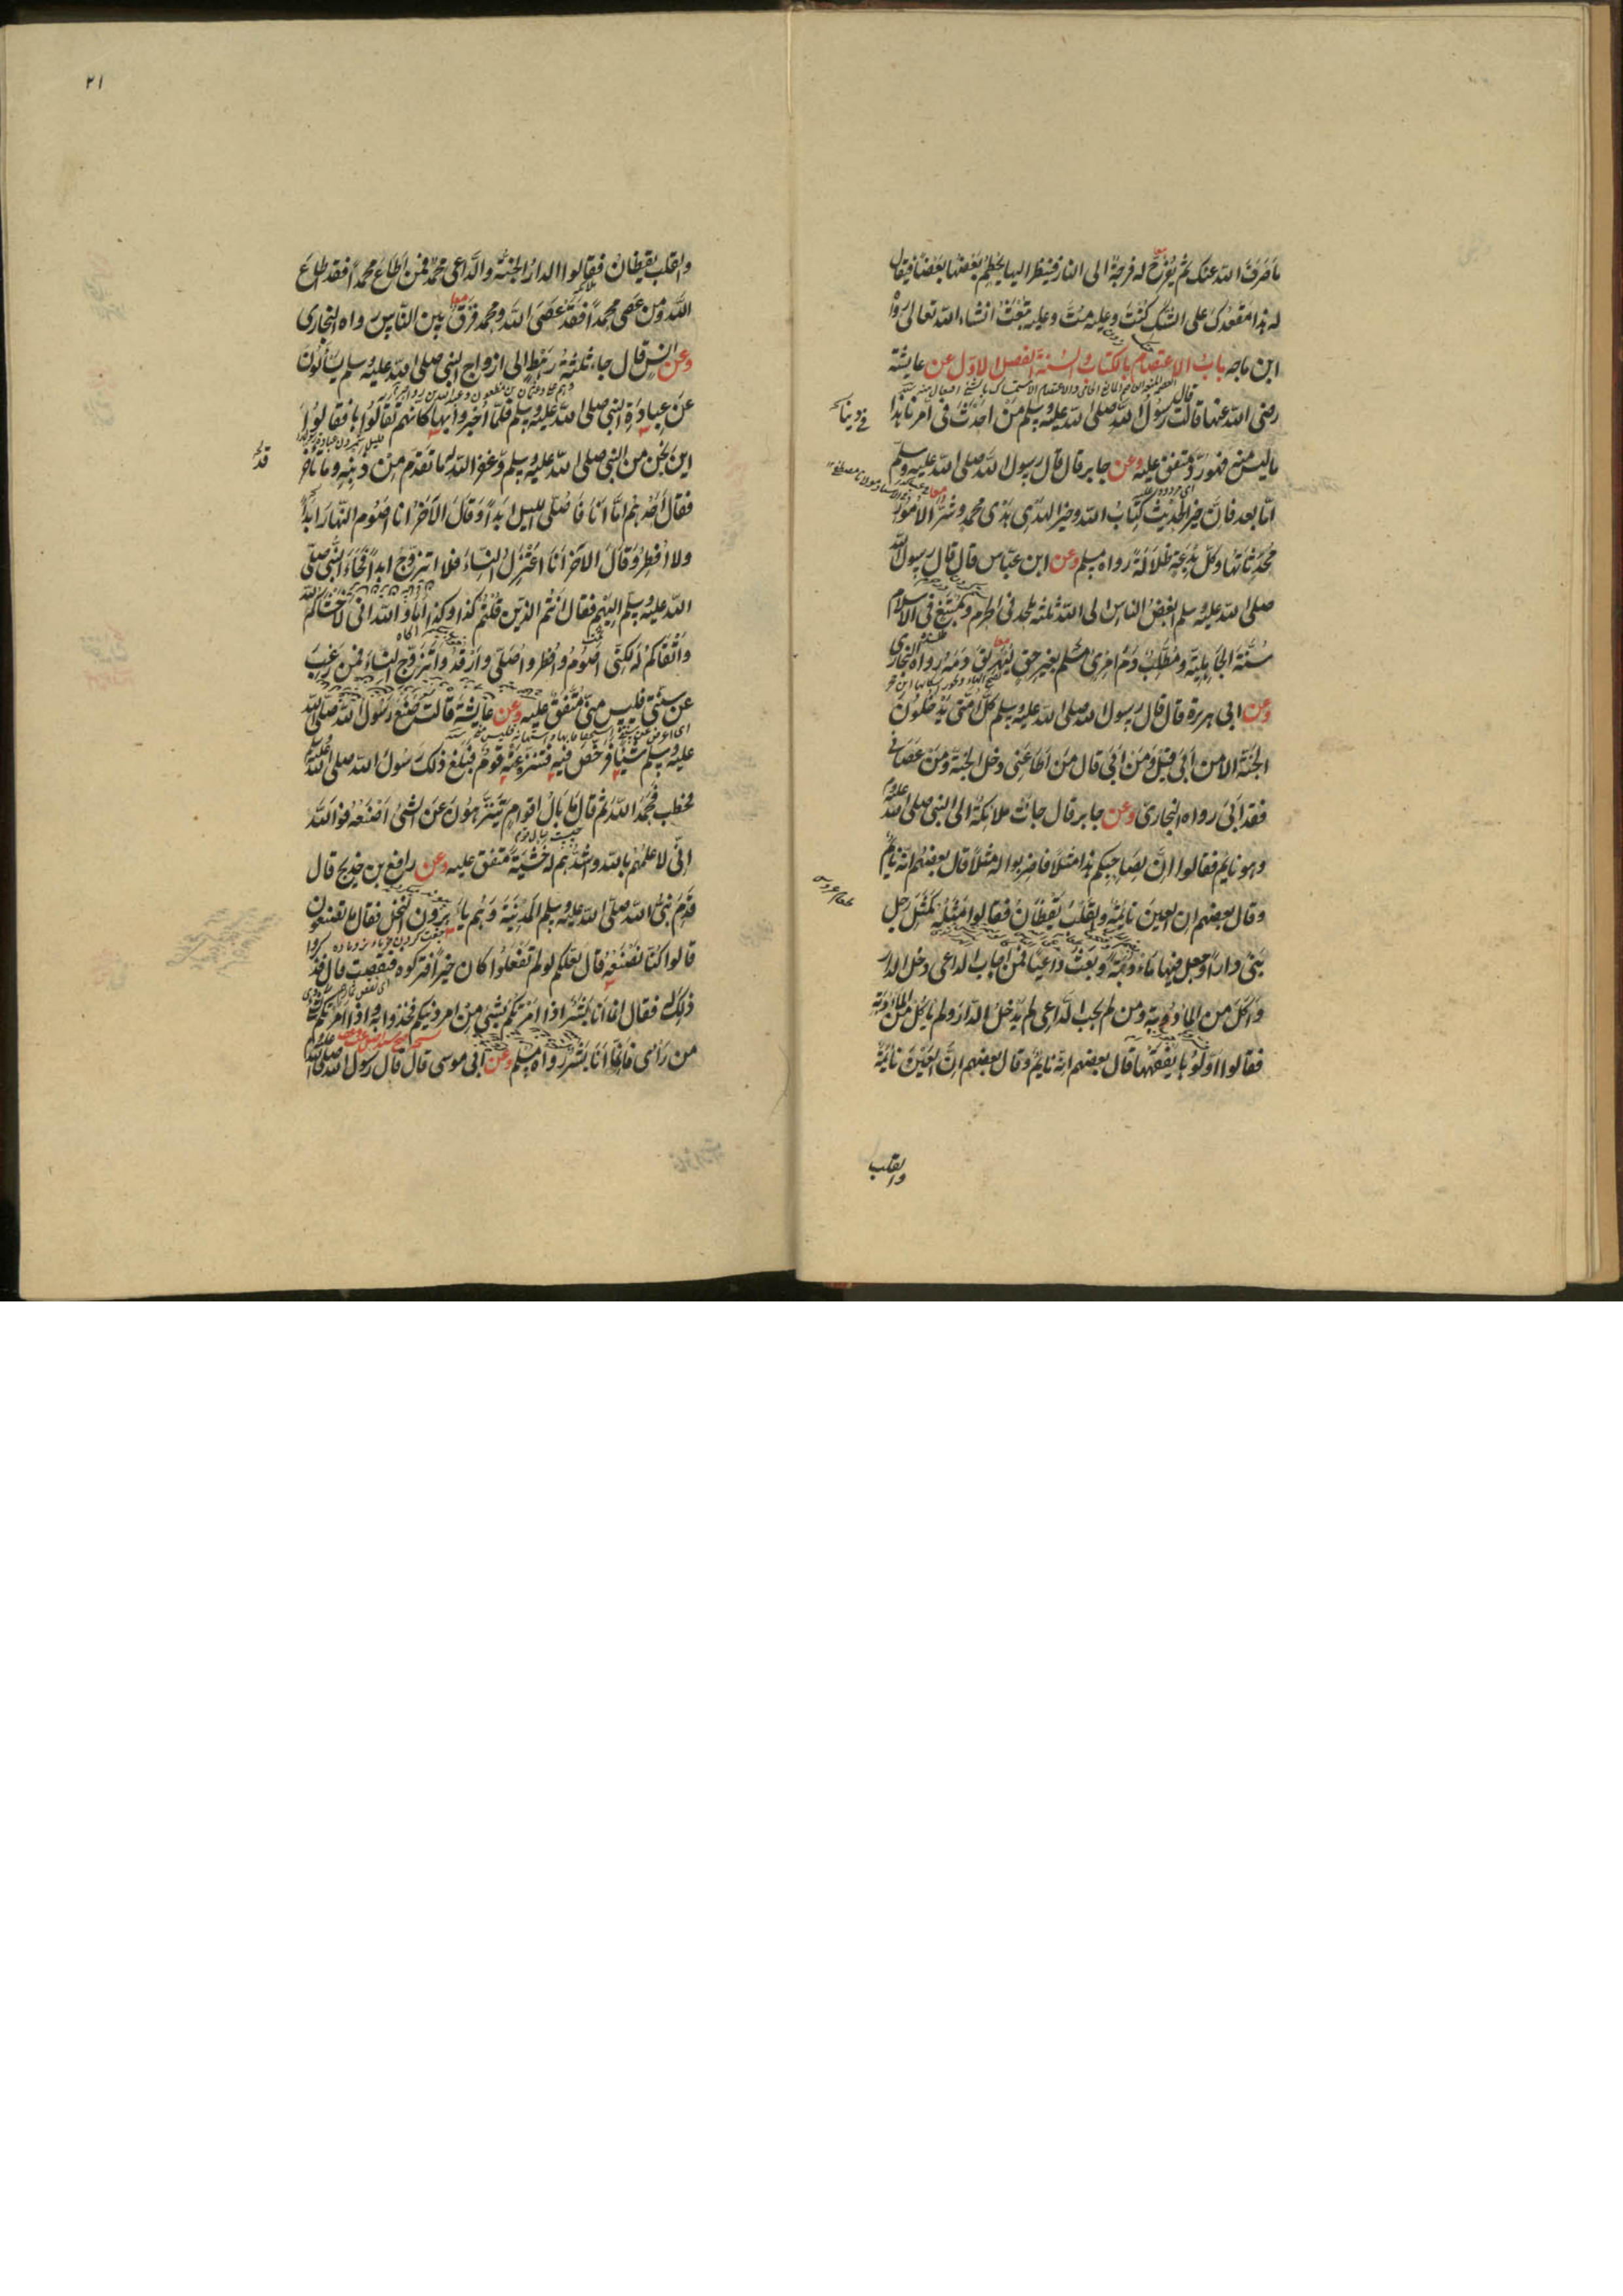 ما صَرَفَ اللّه عنک ثم يُفْرَجُ له فُرجةٌ الى النار فينظر اليها يَحطِمُ بَعْضُها بَعْضًا فيقال
له هذا مَقْعَدُکَ على الشکّ کُنْتَ وعليه مِتَّ وعليه تُبْعَثُ انشاء اللّه تعالى رواه
ابن ماجه بابُ الاعتصام بالکتاب والسُنّة الفصل الاوّل عن عایشة
رضى اللّه عنها قالت قال رسُول اللّه صلى اللّه عليه وسلم مَنْ احدَثَ فى امرنا هذا
ما ليس منه فهو رَدٌّ متفق عليه وعن جابر قال قال رسول اللّه صلى اللّه عليه وسلم
امّا بعد فانّ خير الحديث کتابُ اللّه وخير الهَدْى هَدْى محمد وشرّ الامُور
مُحْدَثاتها وکلّ بِدْعة ضلالة رواه مسلم وعن ابن عبّاس قال قال رسول اللّه
صلى اللّه عليه وسلم ابغضُ الناس الى اللّه ثلثة مُلحد فى الحرم ومُبْتَغٍ فى الاسلام
سُنّة الجاهلية ومُطّلِبُ دَمِ امرئ مسلم بغير حق ليُهَرِيقَ دَمَه رواه البخارى
وعن ابى هريرة قال قال رسول اللّه صلى اللّه عليه وسلم کلّ امّتى يَدْخلُونَ
الجَنّة الا من اَبى قِيل ومَن اَبى قال مَن اَطاعَنى دخل الجنّة ومَن عَصانى
فقد اَبى رواه البخارى وعن جابر قال جاءت ملائکةٌ الى النبى صلى اللّه عليه وسلم
وهو نايم فقالوا اِنّ لِصاحِبِکم هذا مَثَلاً فاضربوا له مثلاً قال بعضهم انّه نايمٌ
وقال بعضهم ان العينَ نائمة والقلبَ يَقْظانُ فقالوا مَثَلُه کمَثَل رجلٍ
بَنى دارًا وجعل فيها مَأدُبَةً وبَعَثَ داعِيًا فمَن اجاب الداعى دخل الدار
وَاَکَلَ من المأدُبة ومن لم يجب الدّاعى لم يَدْخل الدّارَ ولم ياکل من المأدُبَة
فقالوا اَوّلُوها يفقَهْها قال بعضهم انّه نايم وقال بعضهم اِنّ العَيْنَ نائمةٌ
والقلب
٢١
والقلب يقظان فقالوا الدارُ الجنّة والدّاعى محمّدٌ فمَن اَطاعَ محمدًا فقد اطاعَ
اللّه ومَن عَصى محمدًا فقد عَصَى اللّه ومحمد فَرْقٌ بين النّاس رواه البخارى
وعن انس قال جاء ثلثةُ رَهْطٍ الى ازواج النبى صلى اللّه عليه وسلم يَسْألُونَ
عَن عِبادَةِ النبى صلى اللّه عليه وسلم فلمّا اُخبِروا بها کانهم تَقالُّوها فقالوُا
اين نحن من النبى صلى اللّه عليه وسلم وقد غفر اللّه له ما تقدّم من ذَنْبِه وما تأخّر
فقال احدهم امّا اَنا فَاُصلّى الليل ابَدًا وقالَ الآخَرُ انا اصُوم النّهارَ ابَدًا
ولا اُفْطِرُ وقالَ الآخر اَنا اَعْتَزِلُ النّساء فلا اتزوّج ابدًا فجاء النّبىُّ صلّى
اللّه عليه وسلّم اليهم فقال انتُم الذين قلتم کذا وکذا اَما واللّه انى لَاخْشاکُم للّه
واَتْقاکُم لَه لکنّى اصُومُ واُفْطر واُصَلّى وارْقُدُ واَتَزوّج النساءَ فمن رَغِبَ
عن سنّتى فليس منّى متّفق عليه وعن عايشة قالت صَنَع رسُول اللّه صلى اللّه
عليه وسلم شيئًا فرخّص فيه فتنزّه عنه قومٌ فبلغ ذلک رسُولَ اللّه صلى اللّه عليه وسلم
فخطب فحَمِدَ اللّه ثم قال ما بَالُ اقوامٍ يَتَنَزّهُونَ عَن الشئ اَصْنَعُه فواللّه
اِنّى لاعلمُهم باللّه واشدُّهم له خَشْيَةً متفق عليه وعن رافع بن خديج قال
قَدِمَ نبىُّ اللّه صلّى اللّه عليه وسلم المدينة وهُم يأبِرون النخل فقال ما تصنعون
قالوا کنّا نَصْنَعُه قال لعلّکم لو لم تفعلُوا کان خيرًا فترکوه فنقصت قال فذکروا
ذلک له فقال انما اَنا بشرٌ اذا امَرْتُکُم بشئ مِن امر دينکم فخذوا به واذا امرتکم بشئ
من رَأيى فانّما اَنا بشر رواه مسلم وعن ابى موسى قال قال رسول اللّه صلى اللّه عليه وسلم